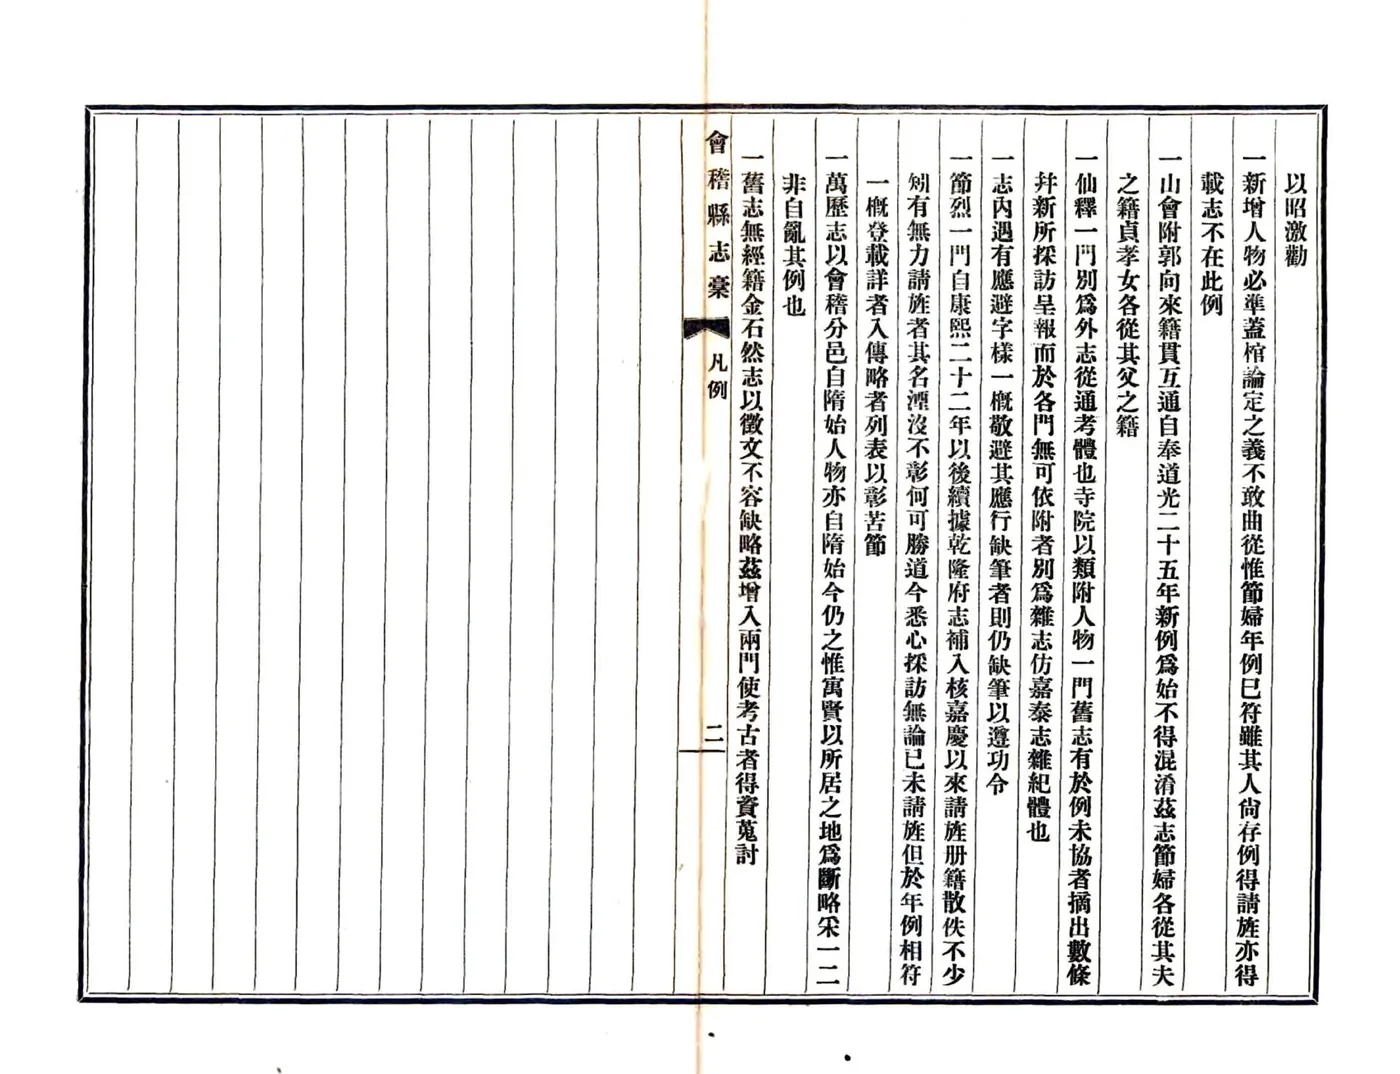 以昭激勸
一新增人物必準蓋棺論定之義不敢曲從惟節婦年例巳符雖其人尙存例得請旌亦得
載志不在此例
一山會附郭向來籍貫互通自奉道光二十五年新例爲始不得混淆茲志節婦各從其夫
之籍貞孝女各從其父之籍
一仙釋一門別爲外志從通考體也寺院以類附人物一門舊志有於例未協者摘出數條
幷新所採訪呈報而於各門無可依附者別爲雜志仿嘉泰志雜紀體也
一志內遇有應避字樣一槪敬避其應行缺筆者則仍缺筆以遵功令
一節烈一門自康熙二十二年以後續據乾隆府志補入核嘉慶以來請旌册籍散佚不少
矧有無力請旌者其名湮沒不彰何可勝道今悉心採訪無論已未請旌但於年例相符
一槪登載詳者入傳略者列表以彰苦節
一萬歷志以會稽分邑自隋始人物亦自隋始今仍之惟寓賢以所居之地爲斷略采一二
非自亂其例也
一舊志無經籍金石然志以徵文不容缺略茲增入兩門使考古者得資蒐討
會稽縣志稾
凡例
二